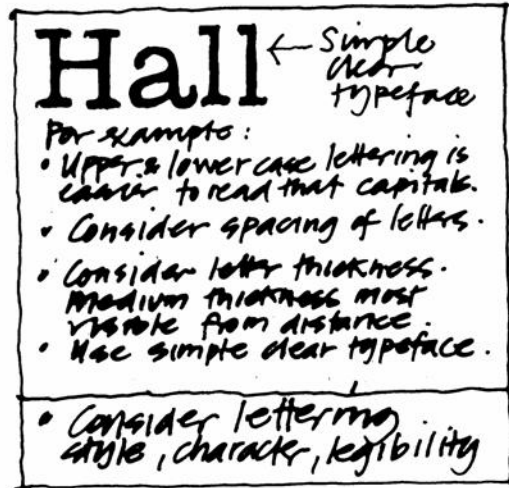 Hall ← Simple
clear
typeface
For example:
• Upper & lower case lettering is
easier to read that capitals.
• Consider spacing of letters.
• Consider letter thickness.
Medium thickness most
visible from distance.
• Use simple clear typeface.
• Consider lettering
style, character, legibility